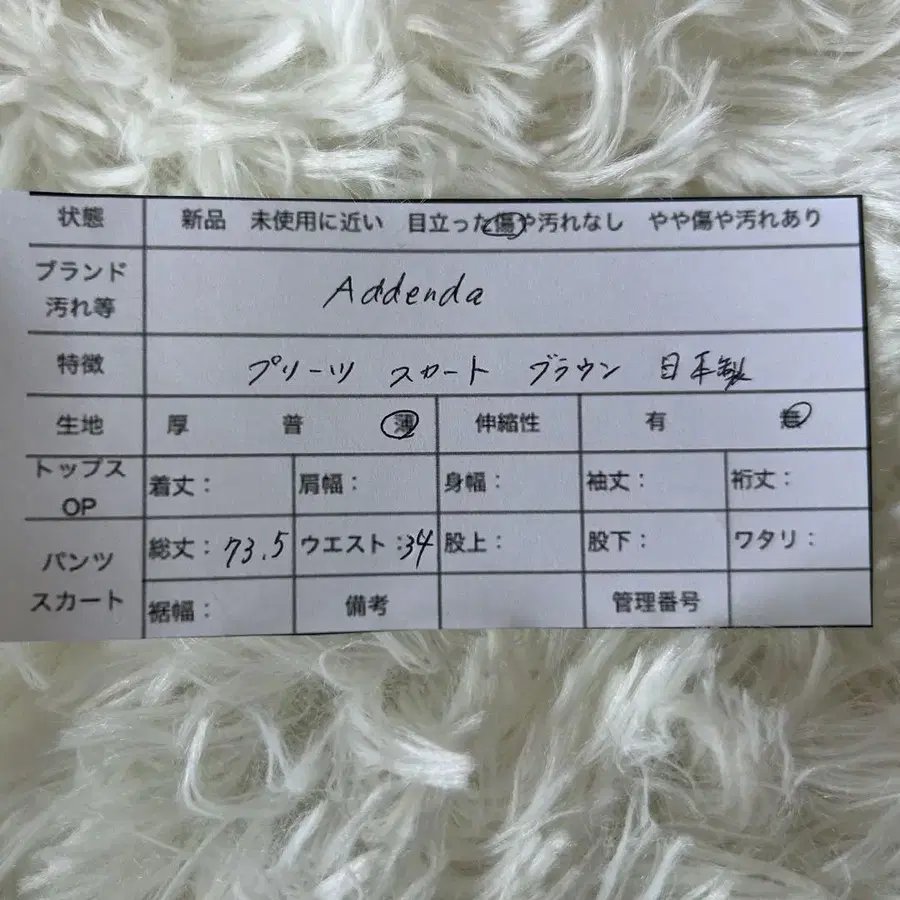 状態 新品 未使用に近い 目立った傷や汚れなし やや傷や汚れあり
ブランド
汚れ等 Addenda
特徴 プリーツ スカート ブラウン 日本製
生地 厚 普 薄 伸縮性 有 無
トップス
OP 着丈: 肩幅: 身幅: 袖丈: 裄丈:
パンツ
スカート 総丈:73.5 ウエスト:34 股上: 股下: ワタリ:
裾幅: 備考 管理番号